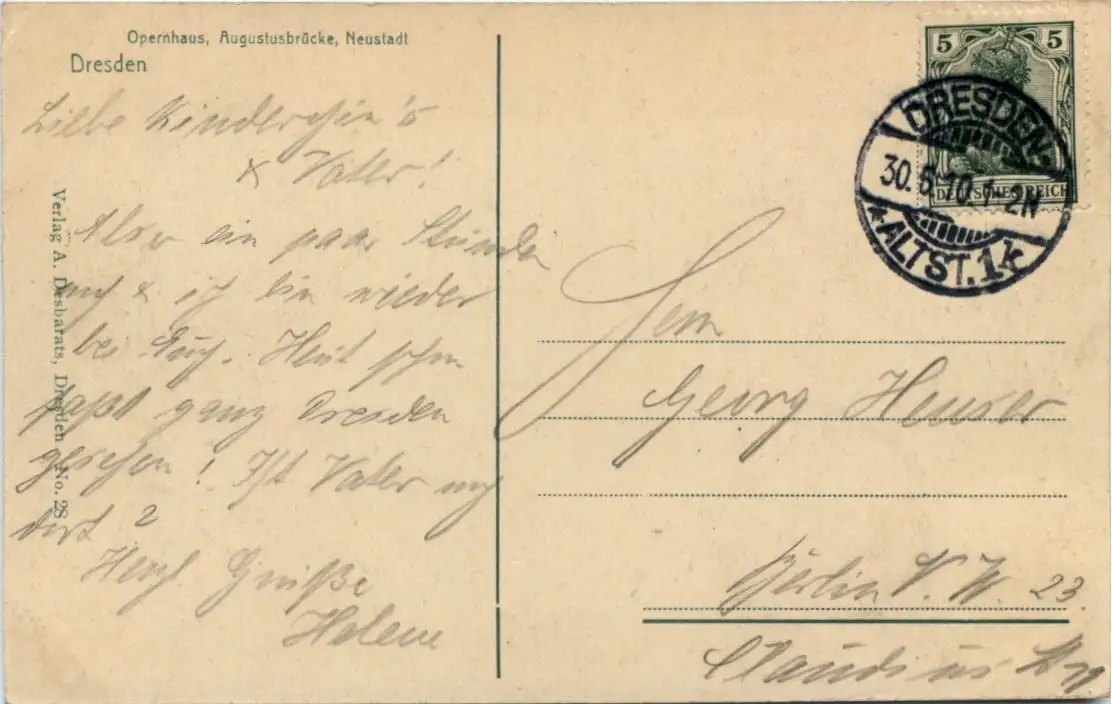 Opernhaus, Augustusbrücke, Neustadt
Dresden
Liebe Kinderchen's
& Vater!
Also ein paar Stunden
noch & ich bin wieder
bei Euch. Heut schon
fast ganz Dresden
gesehen! Ist Vater noch
dort?
Herzl Grüße
Helene
Verlag A. Desbarats, Dresden No. 28
5 5
DEUTSCHES REICH
DRESDEN-
30.6.10.1-2N
*ALTST.1k
Herrn
Georg Heuser
Berlin N.W. 23.
Claudius